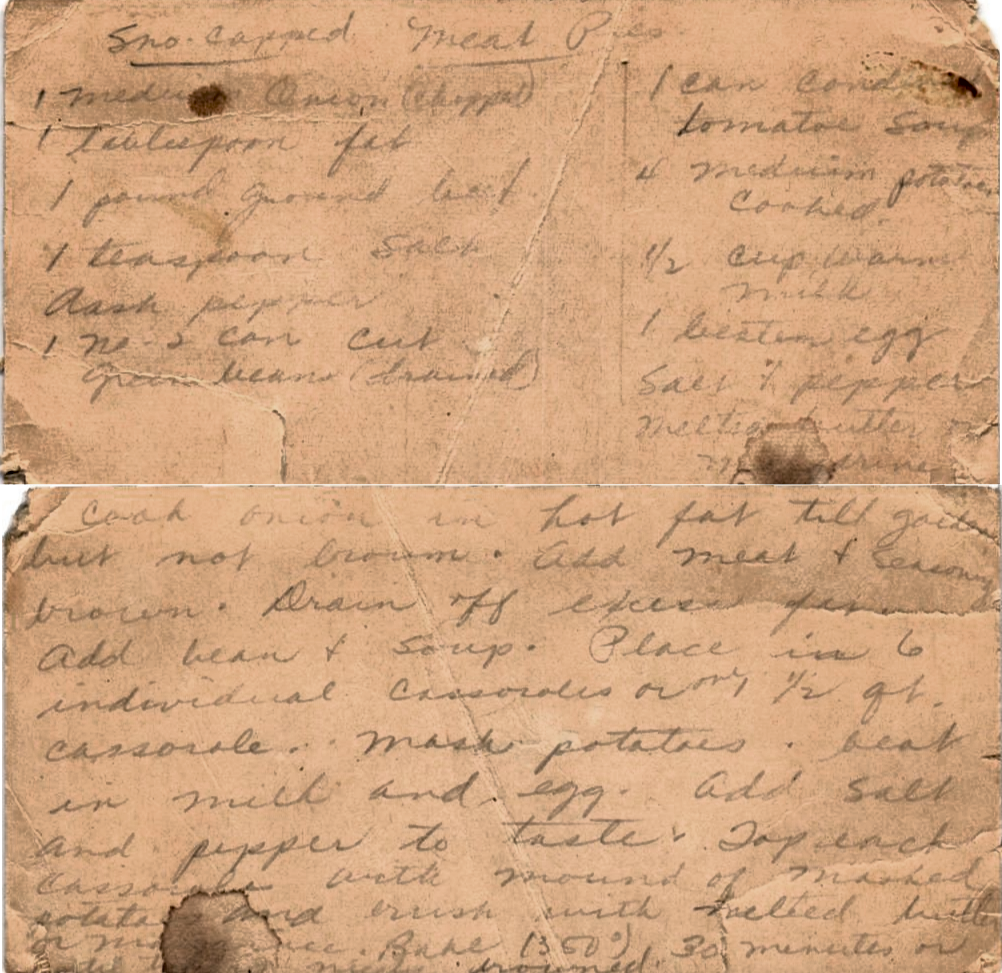 Sno-capped Meat Pies
1 medium Onion (chopped)
1 tablespoon fat
1 pound ground beef
1 teaspoon Salt
Dash pepper
1 No. 2 can cut
green beans (drained)
1 can
tomatoe Soup
4 medium potatoes
cooked.
1/2 cup warm
milk
1 beaten egg
Salt & pepper
melted butter or
Cook onion in hot fat till golden
but not brown. Add meat & Seasoning
brown. Drain off excess
Add bean & Soup. Place in 6
individual Cassoroles or one 1 1/2 qt.
cassorole. Mash potatoes. beat
in milk and egg. Add Salt
and pepper to taste. Top each
with mound of Mashed
and brush with melted butter
or Bake (350°) 30 minutes or
browned.